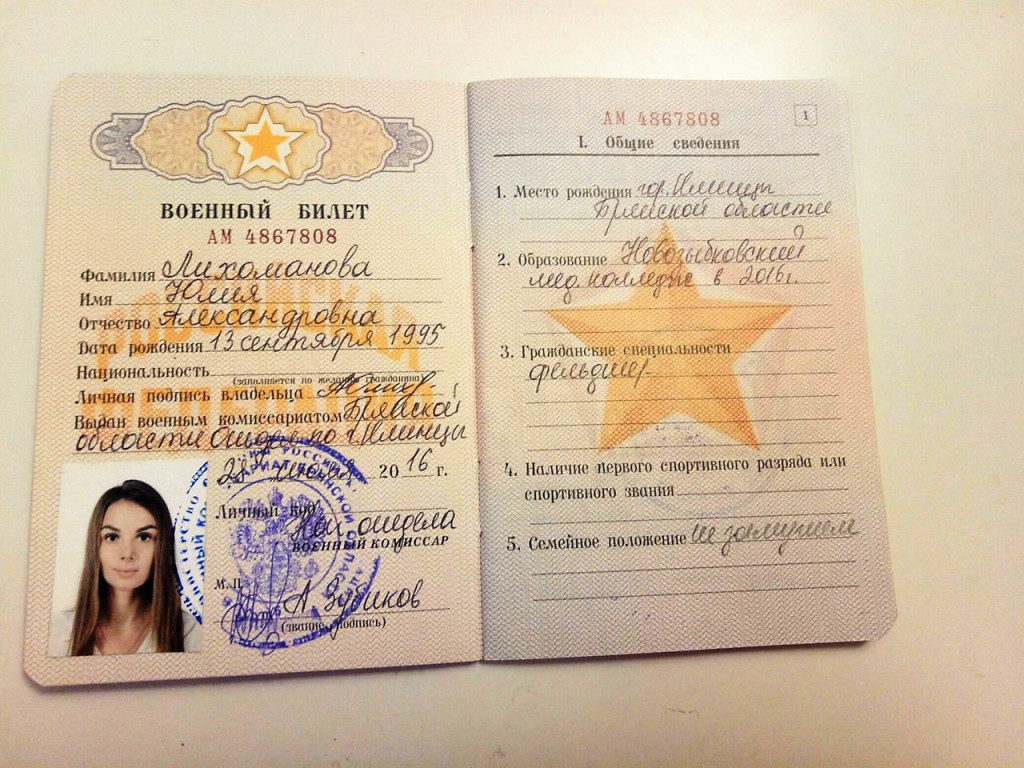 ВОЕННЫЙ БИЛЕТ
АМ 4867808
Фамилия Лихоманова
Имя Юлия
Отчество Александровна
Дата рождения 13 сентября 1995
Национальность
(заполняется по желанию гражданина)
Личная подпись владельца
Выдан военным комиссариатом Брянской
области Отдел по г. Клинцы
2016 г.
Личный код
Нач. отдела
ВОЕННЫЙ КОМИССАР
М. П.
А Зубиков
(звание, подпись)
АМ 4867808
1
I. Общие сведения
1. Место рождения гор. Клинцы
Брянской области
2. Образование Новозыбковский
мед. колледж в 2016 г.
3. Гражданские специальности
фельдшер
4. Наличие первого спортивного разряда или
спортивного звания
5. Семейное положение не замужем